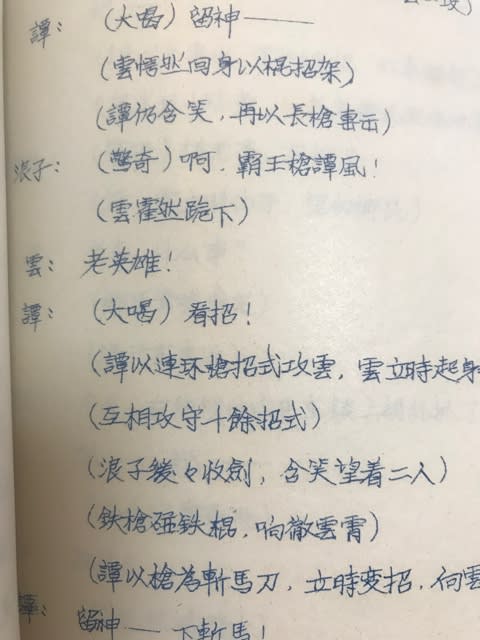 譚：（大喝）留神———
（雲悟然回身以棍招架）
（譚仍含笑，再以長槍專击）
浪子：（驚奇）啊，霸王槍譚風！
（雲霍然跪下）
雲：老英雄！
譚：（大喝）看招！
（譚以連环槍招式攻雲，雲立時起身
（互相攻守十餘招式）
（浪子緩々收劍，含笑望着二人）
（鉄槍碰鉄棍，响徹雲霄）
（譚以槍為斬馬刀，立時变招，向雲
譚：留神——下斬馬！